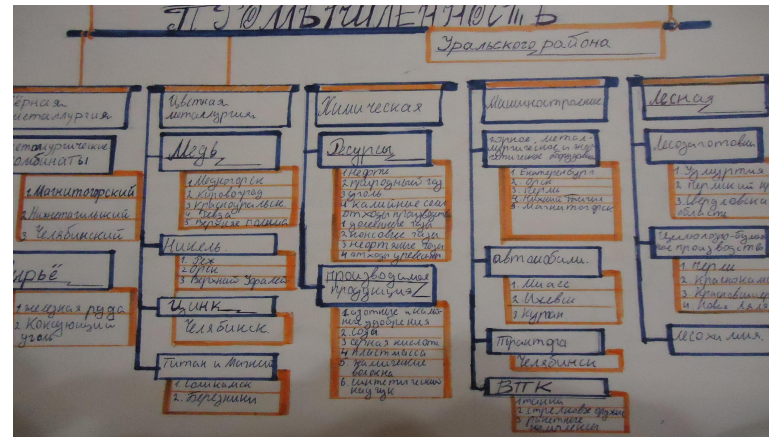 ПРОМЫШЛЕННОСТЬ
Уральского района
ёрная
металлургия
еталлургические
омбинаты
1. Магнитогорский
2. Нижнетагильский
3. Челябинский
ырьё
1. железная руда
2 Коксующийся
уголь
Цветная
металлургия
Медь
1. Медногорск
2. Кировоград
3 Красноуральск
4. Ревда
5 Верхняя Пышма
Никель.
1. Реж
2. Орск
3. Верхний Уфалей
Цинк
Челябинск
Титан и Магний
1. Соликамск
2. Березники
Химическая
Ресурсы
1 нефть
2 природный газ
3 уголь
4 калийные соли
отходы производства
1 доменные газы
2 коксовые газы
3 нефтяные газы
4 отходы древесины
производимая
продукция
1 азотные и калий-
ные удобрения
2. Сода
3 серная кислота
4 Пластмасса
5. Химические
волокна
6. синтетический
каучук
Машиностроение
горное, метал-
лургическое и
1. Екатеринбург
2. Орск
3. Пермь
4. Нижний Тагил
5 Магнитогорск
автомобили.
1. Миасс
2. Ижевск
3 Курган
Трактора
Челябинск
ВПК
1 танки
2 стрелковое оружие
3 ракетные
комплексы
Лесная
Лесозаготовки
1. Удмуртия
2 Пермский кр
3 Свердловска
область
Целлюлозно-бумаж
ное производств
1. Пермь
2. Краснокамс
3. Красновишер
4. Новая Ляля
Лесохимия.